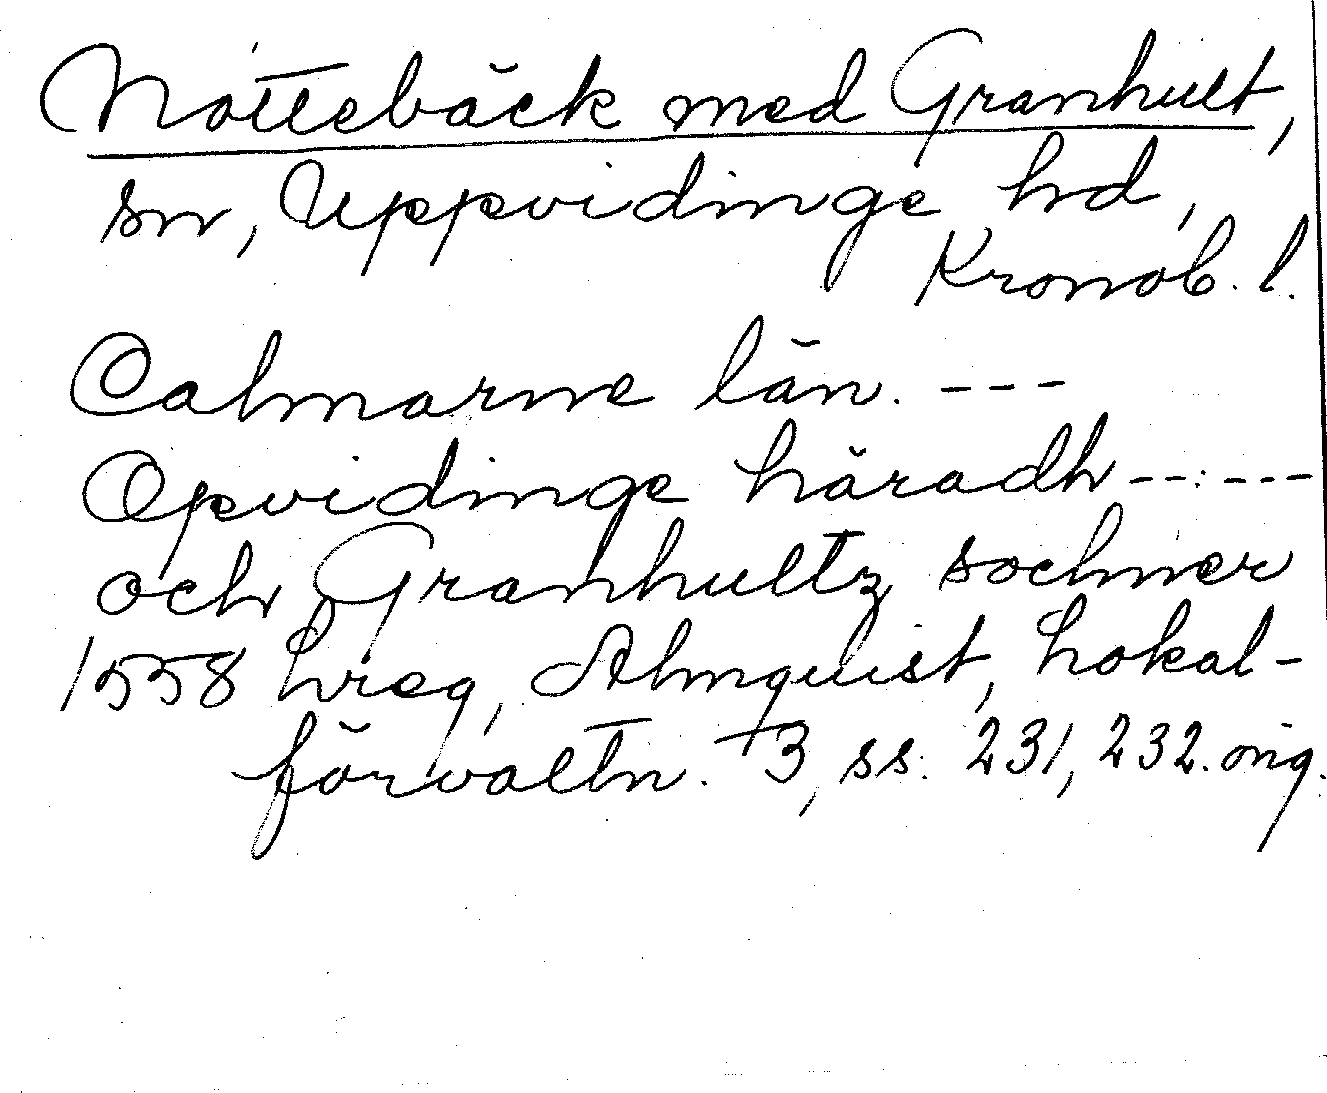 Nöttebäck med Granhult,
sn, Uppvidinge hd,
Kronob. l.
Calmarne län. ---
Opvidinge häradh --- ---
och Granhultz sochner
1558 hreg, Almquist, Lokal-
förvaltn. 3, ss. 231, 232. orig.